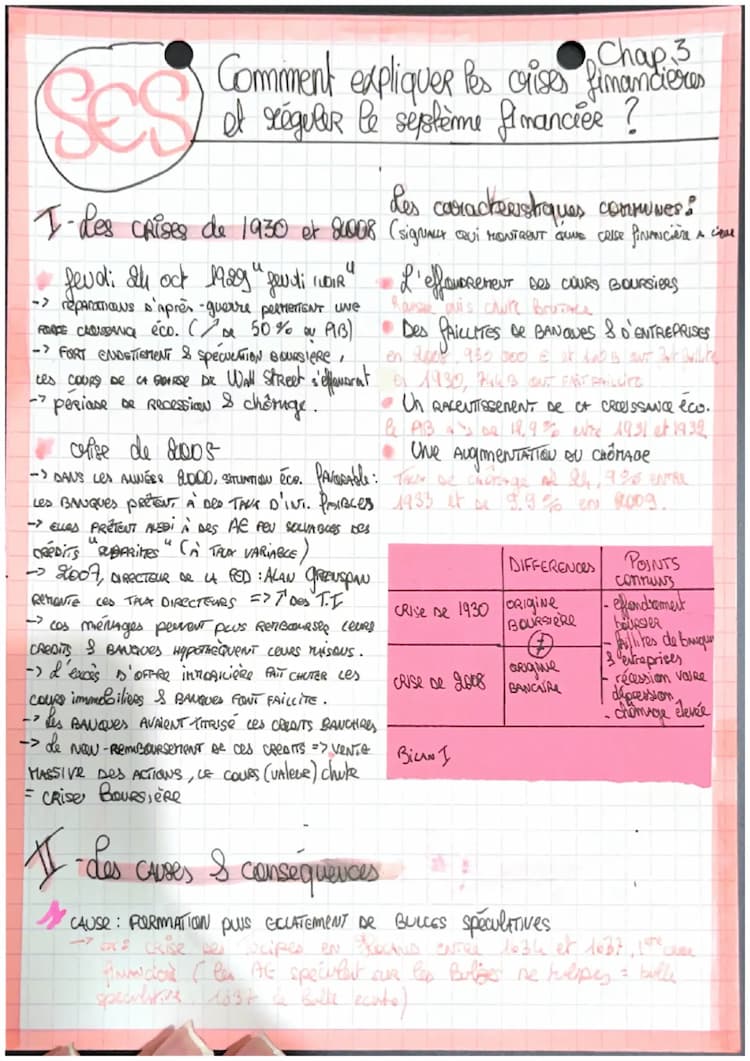 Chap.3
SES
Comment expliquer les crises financières
et réguler le système financier ?
I - Les crises de 1930 et 2008
Jeudi 24 oct 1929 "jeudi noir"
-> réparations d'après-guerre permettent une
forte croissance éco. (↗ de 50 % du PIB)
-> Fort endettement & spéculation boursière,
les cours de la bourse de Wall Street s'effondrent
-> période de récession & chômage.
crise de 2008
-> Dans les années 2000, situation éco. favorable :
les banques prêtent à des taux d'int. faibles
-> elles prêtent aussi à des AE peu solvables des
crédits "subprimes" (à taux variable)
-> 2007, directeur de la FED : Alan Greenspan
remonte les taux directeurs => ↗ des T.I
-> Les ménages peuvent plus rembourser leurs
crédits & banques hypothéquent leurs maisons.
-> L'excès d'offre immobilière fait chuter les
cours immobiliers & banques font faillite.
-> Les banques avaient titrisé les crédits
-> Le non-remboursement de ces crédits => vente
massive des actions, le cours (valeur) chute
= crise boursière
Les caractéristiques communes :
(signaux qui montrent qu'une crise financière a lieu
L'effondrement des cours boursiers
Hausse puis chute brutale
Des faillites de banques & d'entreprises
en 2008,
en 1930, ont fait faillite
Un ralentissement de la croissance éco.
le PIB de entre 1931 et 1932
Une augmentation du chômage
Taux de chômage de 24,9 % entre
1933 et de 9.9 % en 2009.
DIFFERENCES
POINTS
communs
crise de 1930
origine
boursière
≠
crise de 2008
origine
bancaire
- effondrement
boursier
- faillites de banque
& entreprises
- récession voire
dépression
- chômage élevée
Bilan I
II - Les causes & conséquences
cause : Formation puis eclatement de bulles spéculatives
-> crise des tulipes en entre 1634 et 1637, 1ère crise
financière (les AE spéculent sur les bulbes de tulipes = bulle
spéculative. 1637 la bulle éclate)